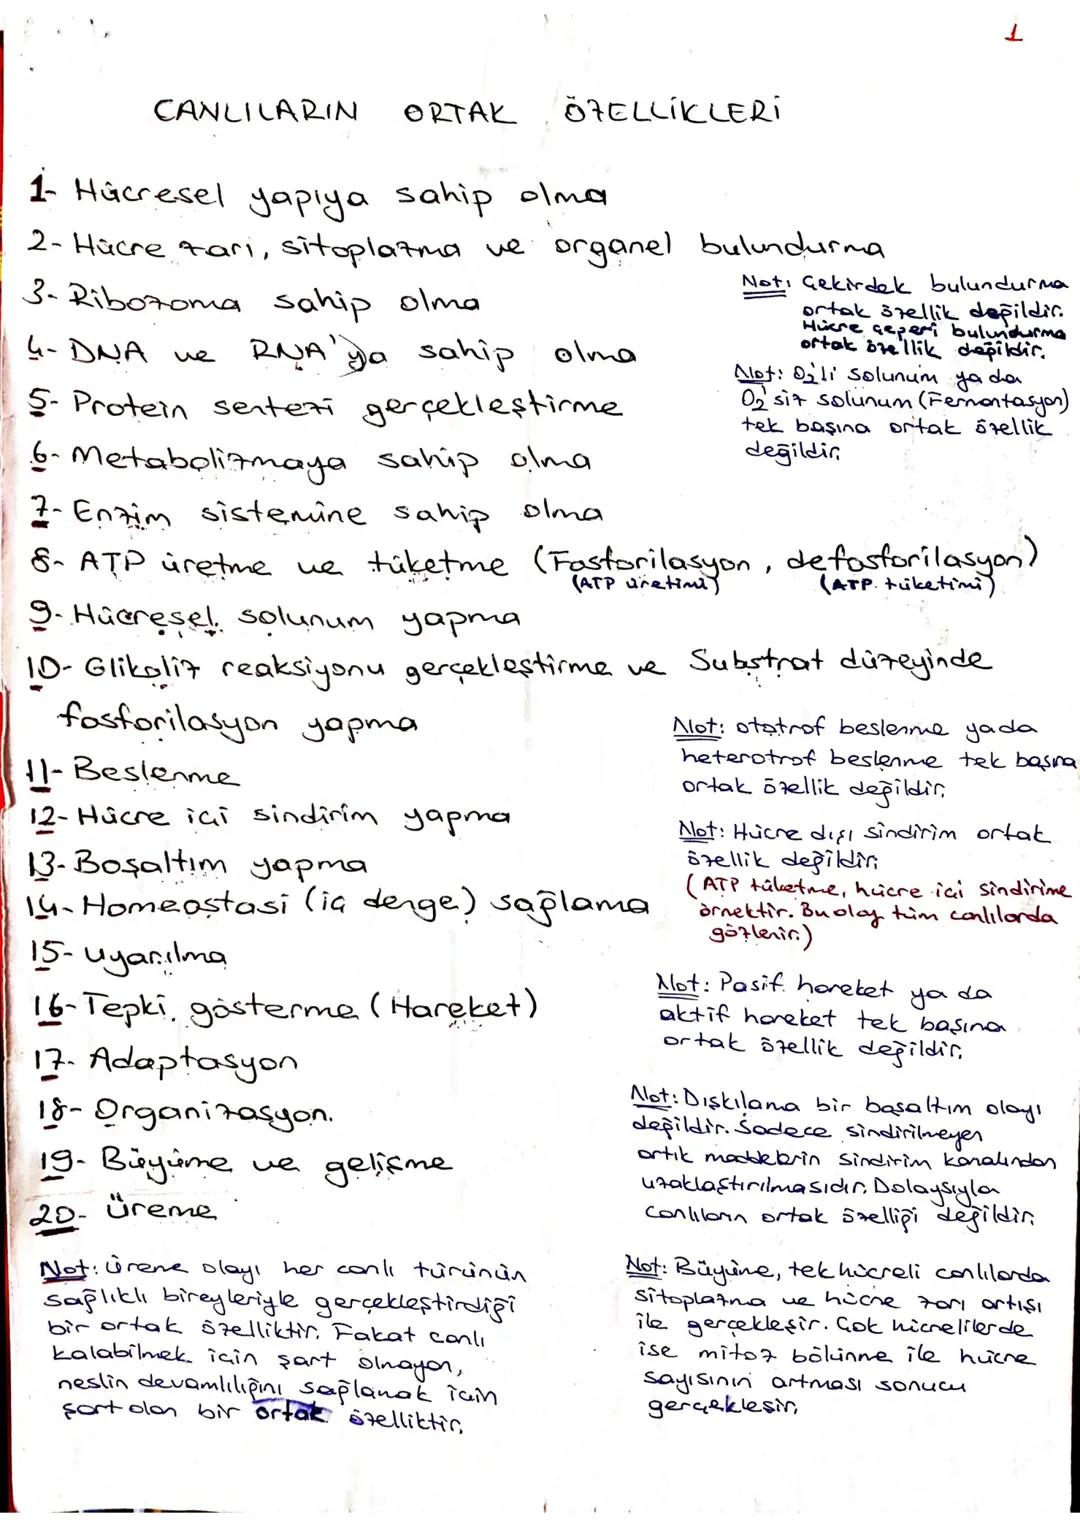 1
CANLILARIN ORTAK ÖZELLİKLERİ
1- Hücresel yapıya sahip olma
2- Hücre zarı, sitoplazma ve organel bulundurma
3- Ribozoma sahip olma
4- DNA ve RNA'ya sahip olma
5- Protein sentezi gerçekleştirme
6- Metabolizmaya sahip olma
7- Enzim sistemine sahip olma
Not: Çekirdek bulundurma
ortak özellik değildir.
Hücre çeperi bulundurma
ortak özellik değildir.
Not: O2'li solunum ya da
O2'siz solunum (Fermantasyon)
tek başına ortak özellik
değildir.
8- ATP üretme ve tüketme (Fosforilasyon, defosforilasyon)
(ATP üretimi) (ATP tüketimi)
9- Hücresel solunum yapma
10- Glikoliz reaksiyonu gerçekleştirme ve Substrat düzeyinde
fosforilasyon yapma
11- Beslenme
12- Hücre içi sindirim yapma
13- Boşaltım yapma
14- Homeostasi (iç denge) sağlama
15- Uyarılma
16- Tepki gösterme (Hareket)
17- Adaptasyon
18- Organizasyon.
19- Büyüme ve gelişme
20- Üreme
Not: ototrof beslenme ya da
heterotrof beslenme tek başına
ortak özellik değildir.
Not: Hücre dışı sindirim ortak
özellik değildir.
(ATP tüketme, hücre içi sindirime
örnektir. Bu olay tüm canlılarda
gözlenir.)
Not: Pasif hareket ya da
aktif hareket tek başına
ortak özellik değildir.
Not: Dışkılama bir boşaltım olayı
değildir. Sadece sindirilmeyen
artık maddelerin sindirim kanalından
uzaklaştırılmasıdır. Dolayısıyla
canlıların ortak özelliği değildir.
Not: Üreme olayı her canlı türünün
sağlıklı bireyleriyle gerçekleştirdiği
bir ortak özelliktir. Fakat canlı
kalabilmek için şart olmayan,
neslin devamlılığını sağlamak için
şart olan bir ortak özelliktir.
Not: Büyüme, tek hücreli canlılarda
sitoplazma ve hücre zarı artışı
ile gerçekleşir. Çok hücrelilerde
ise mitoz bölünme ile hücre
sayısının artması sonucu
gerçekleşir.